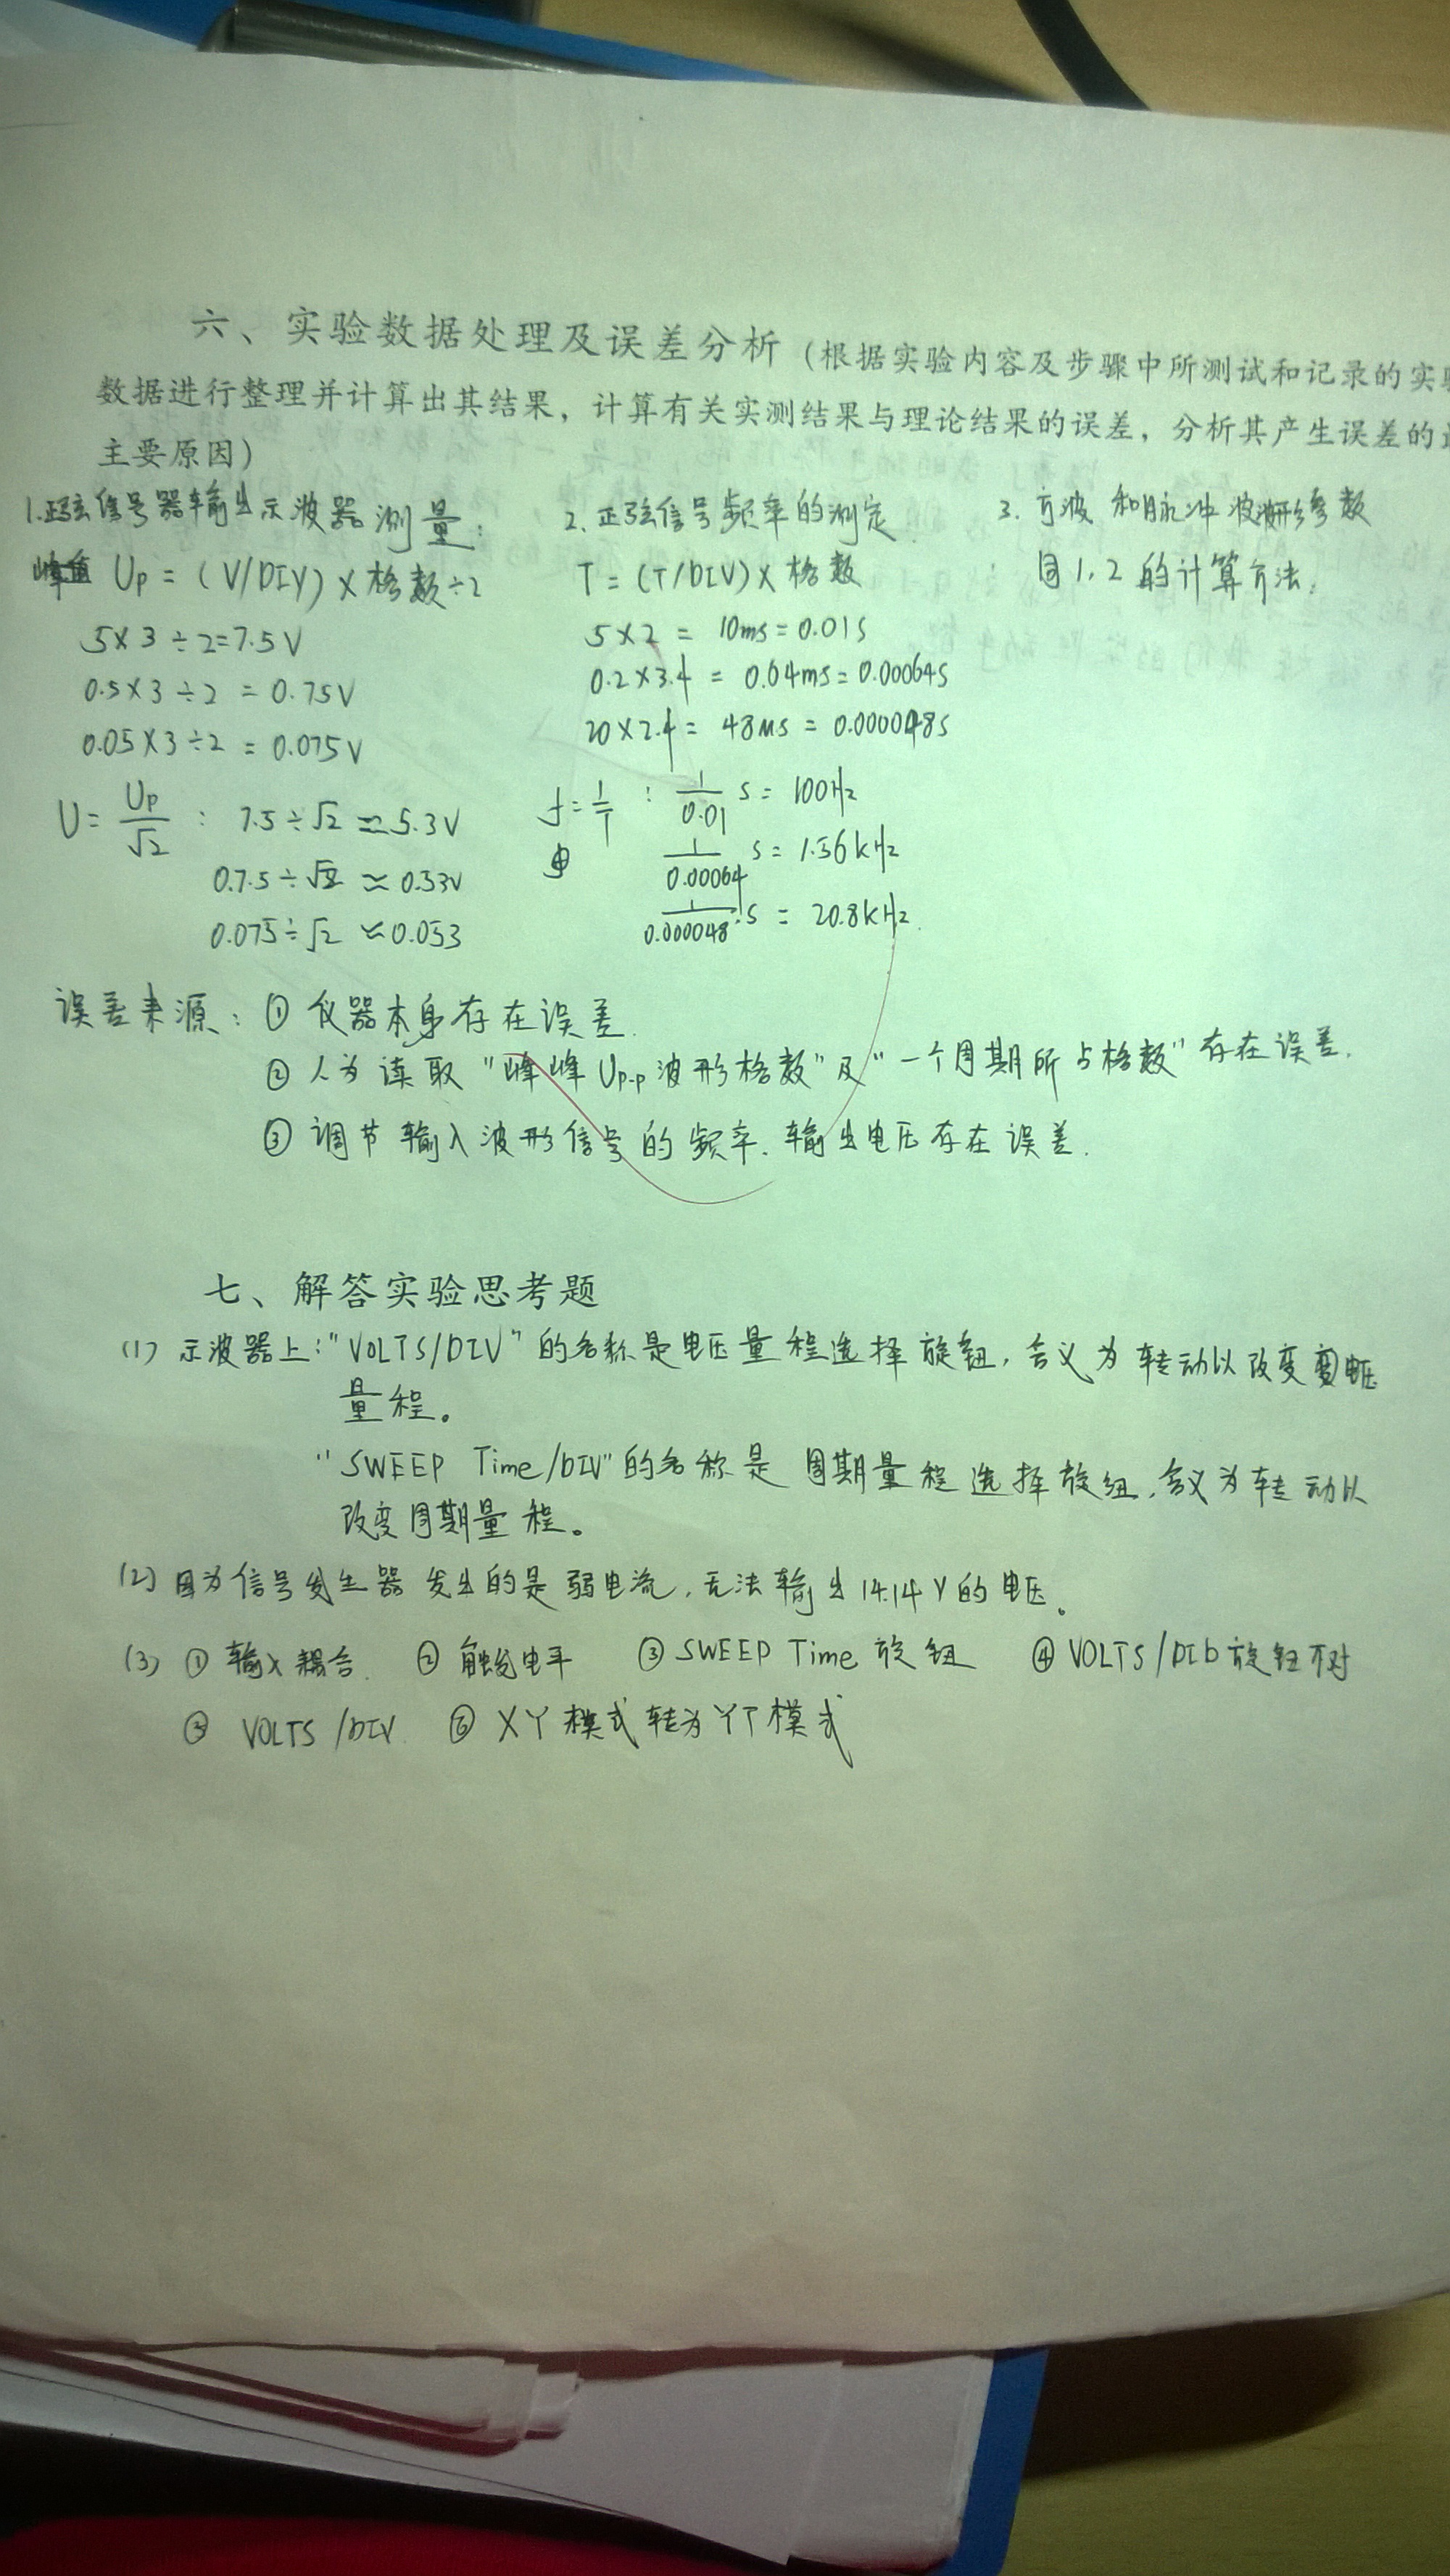 六、实验数据处理及误差分析(根据实验内容及步骤中所测试和记录的实验
数据进行整理并计算出其结果，计算有关实测结果与理论结果的误差，分析其产生误差的
主要原因)
1.正弦信号器输出示波器测量:
峰值 Up = (V/DIV) × 格数÷2
5×3÷2=7.5V
0.5×3÷2 = 0.75V
0.05×3÷2 = 0.075V
U = Up/√2 : 7.5÷√2 ≈ 5.3V
0.7.5÷√2 ≈ 0.53V
0.075÷√2 ≈0.053
2.正弦信号频率的测定.
T = (T/DIV)× 格数
5×2 = 10ms=0.01s
0.2×3.4 = 0.64ms=0.00064s
20×2.4 = 48Ms = 0.000048s
f = 1/T : 1/0.01 s = 100Hz
1/0.00064 s = 1.56kHz
1/0.000048 s = 20.8kHz.
3. 方波和脉冲波波形参数
同1.2的计算方法.
误差来源: ① 仪器本身存在误差.
② 人为读取"峰峰Up-p波形格数"及"一个周期所占格数"存在误差.
③ 调节输入波形信号的频率.输出电压存在误差.
七、解答实验思考题
(1) 示波器上:"VOLTS/DIV"的名称是电压量程选择旋钮,含义为转动以改变电压
量程。
"SWEEP Time/DIV"的名称是周期量程选择旋纽,含义为转动以
改变周期量程。
(2) 因为信号发生器发出的是弱电流,无法输出14.14V的电压。
(3) ① 输入耦合. ② 触发电平 ③ SWEEP Time 旋钮 ④ VOLTS/DID旋钮不对
⑤ VOLTS/DIV. ⑥ XY模式转为YT模式